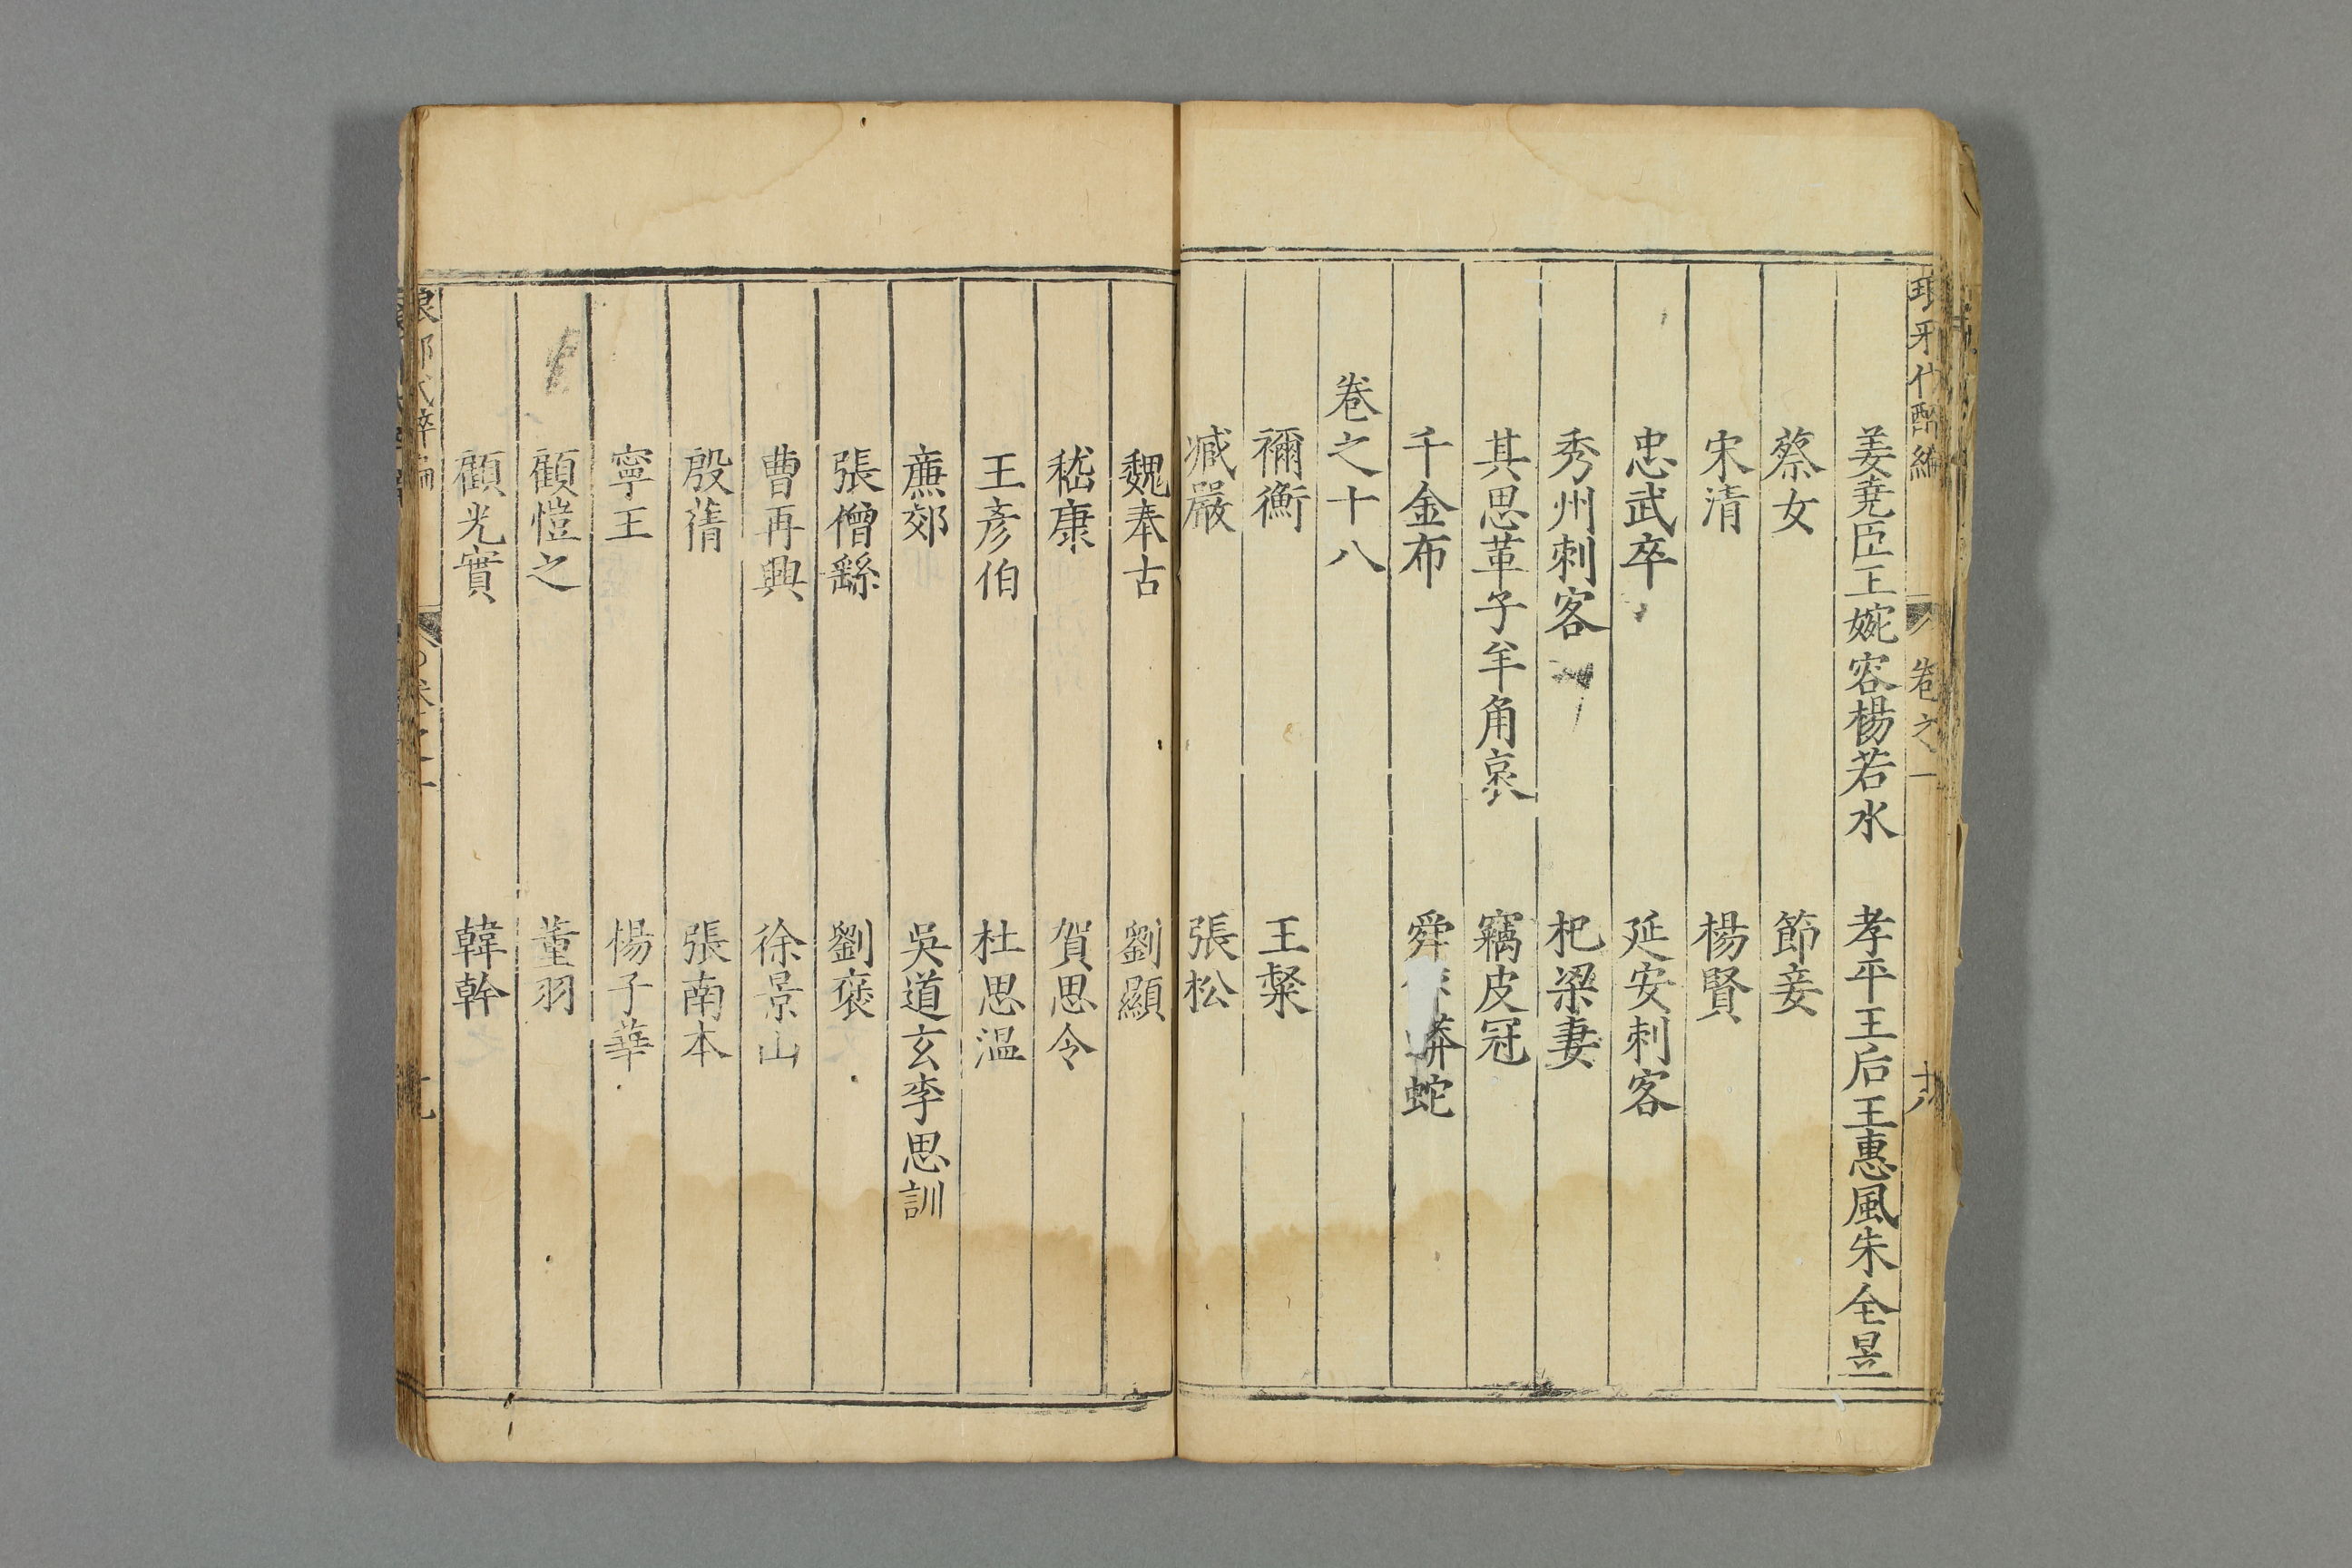 琅琊代醉編 卷之一 十八
姜堯臣王婉容楊若水 孝平王后王惠風朱全昱
蔡女 節妾
宋清 楊賢
忠武卒 延安刺客
秀州刺客 杞梁妻
其思革子羊角哀 竊皮冠
千金布 舜 蟒蛇
卷之十八
禰衡 王粲
臧嚴 張松
魏奉古 劉顯
嵇康 賀思令
王彥伯 杜思溫
廉郊 吳道玄李思訓
張僧繇 劉褒
曹再興 徐景山
殷蒨 張南本
寧王 楊子華
顧愷之 董羽
顧光寳 韓幹